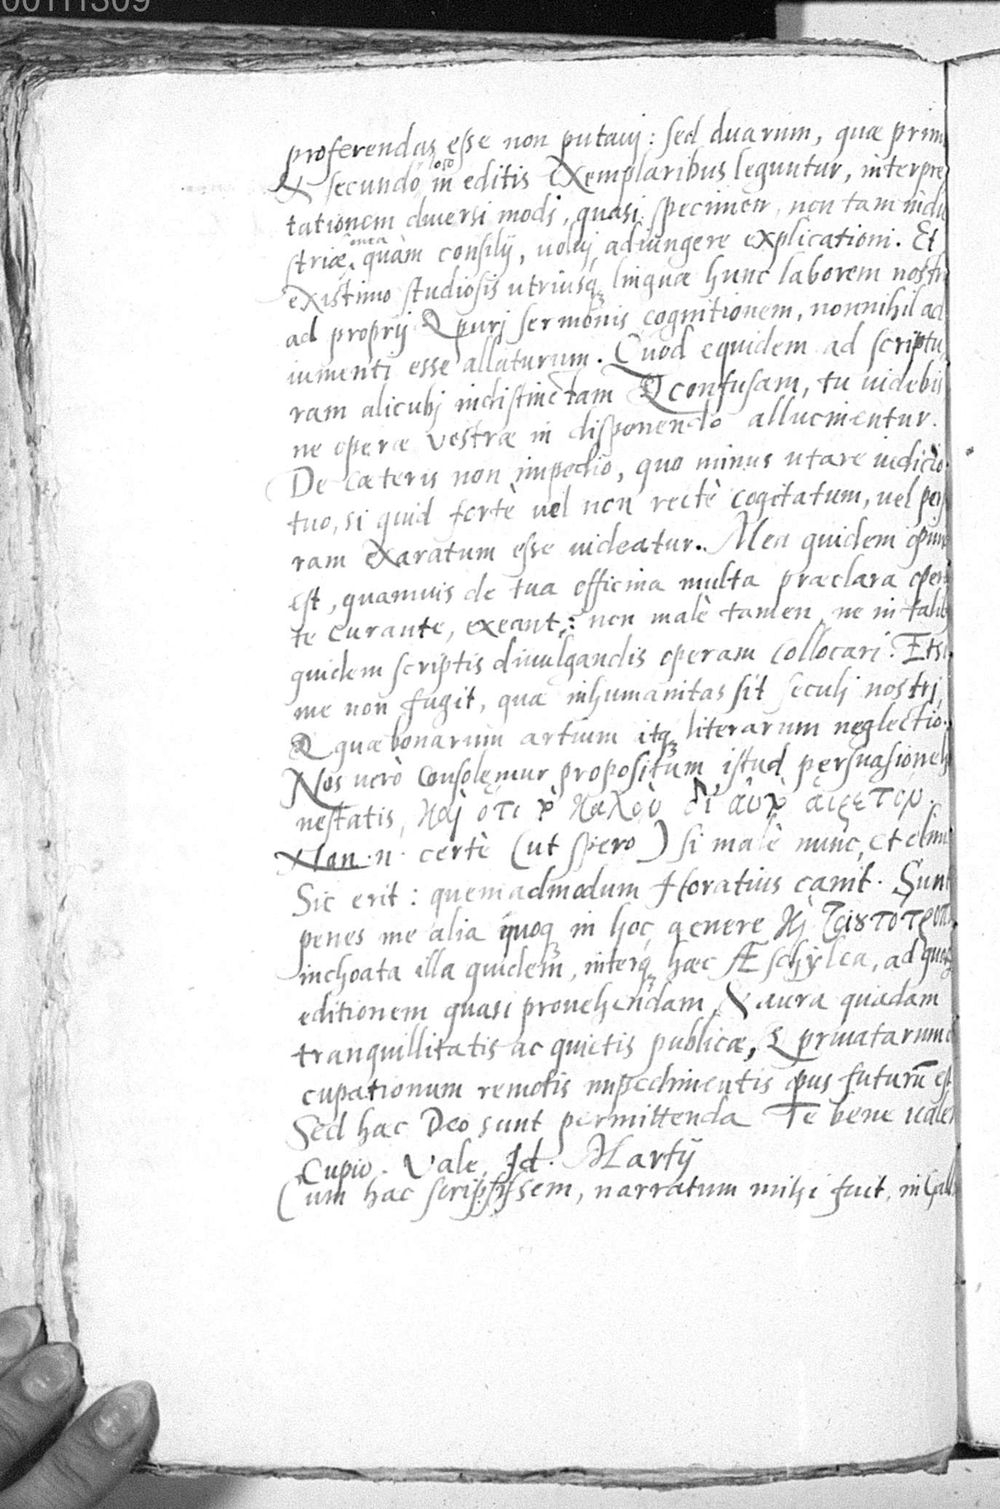 00111309
proferendas esse non putavj: sed duarum, quæ prim
& secundo loco in editis Exemplaribus leguntur, interpre
tationem diversi modj, quasi specimen, non tam indu
striæ meæ quàm consilij, voluj adiungere explicationi. Et
existimo studiosis utriusq linguæ hunc laborem nostr
ad proprij & purj sermonis cognitionem, nonnihil ad
iumenti esse allaturum. Quod equidem ad scriptu
ram alicubj indistinctam & confusam, tu videbis
ne operæ vestræ in disponendo allucinentur.
De cæteris non impedio, quo minus utare iudicio
tuo, si quid fortè vel non rectè cogitatum, vel per
ram exaratum esse videatur. Mea quidem opin
est, quamvis de tua officina multa præclara oper
te curante, exeant: non malè tamen, ne in talib
quidem scriptis divulgandis operam collocari. Etsi
me non fugit, quæ inhumanitas sit seculj nostrj,
& quæ bonarum artium itq literarum neglectio.
Nos verò consolemur propositum istud persuasione h
nestatis, καὶ ὅτι τὸ καλὸν δι' αὑτὸ αἱρετον.
Non .n. certè (ut spero) si malè nunc, et olim
Sic erit: quemadmodum Horatius canit. Sunt
penes me alia quoq in hoc genere
inchoata illa quidem, interq hæc Æschylea, ad quor
editionem quasi provehendam, & aura quadam
tranquillitatis ac quietis publicæ, & privatarum o
cupationum remotis impedimentis opus futurū es
Sed hæc Deo sunt permittenda Te bene valer
Cupio. Vale. Id. Martij
Cum hæc scripsissem, narratum mihi fuit, in Gall